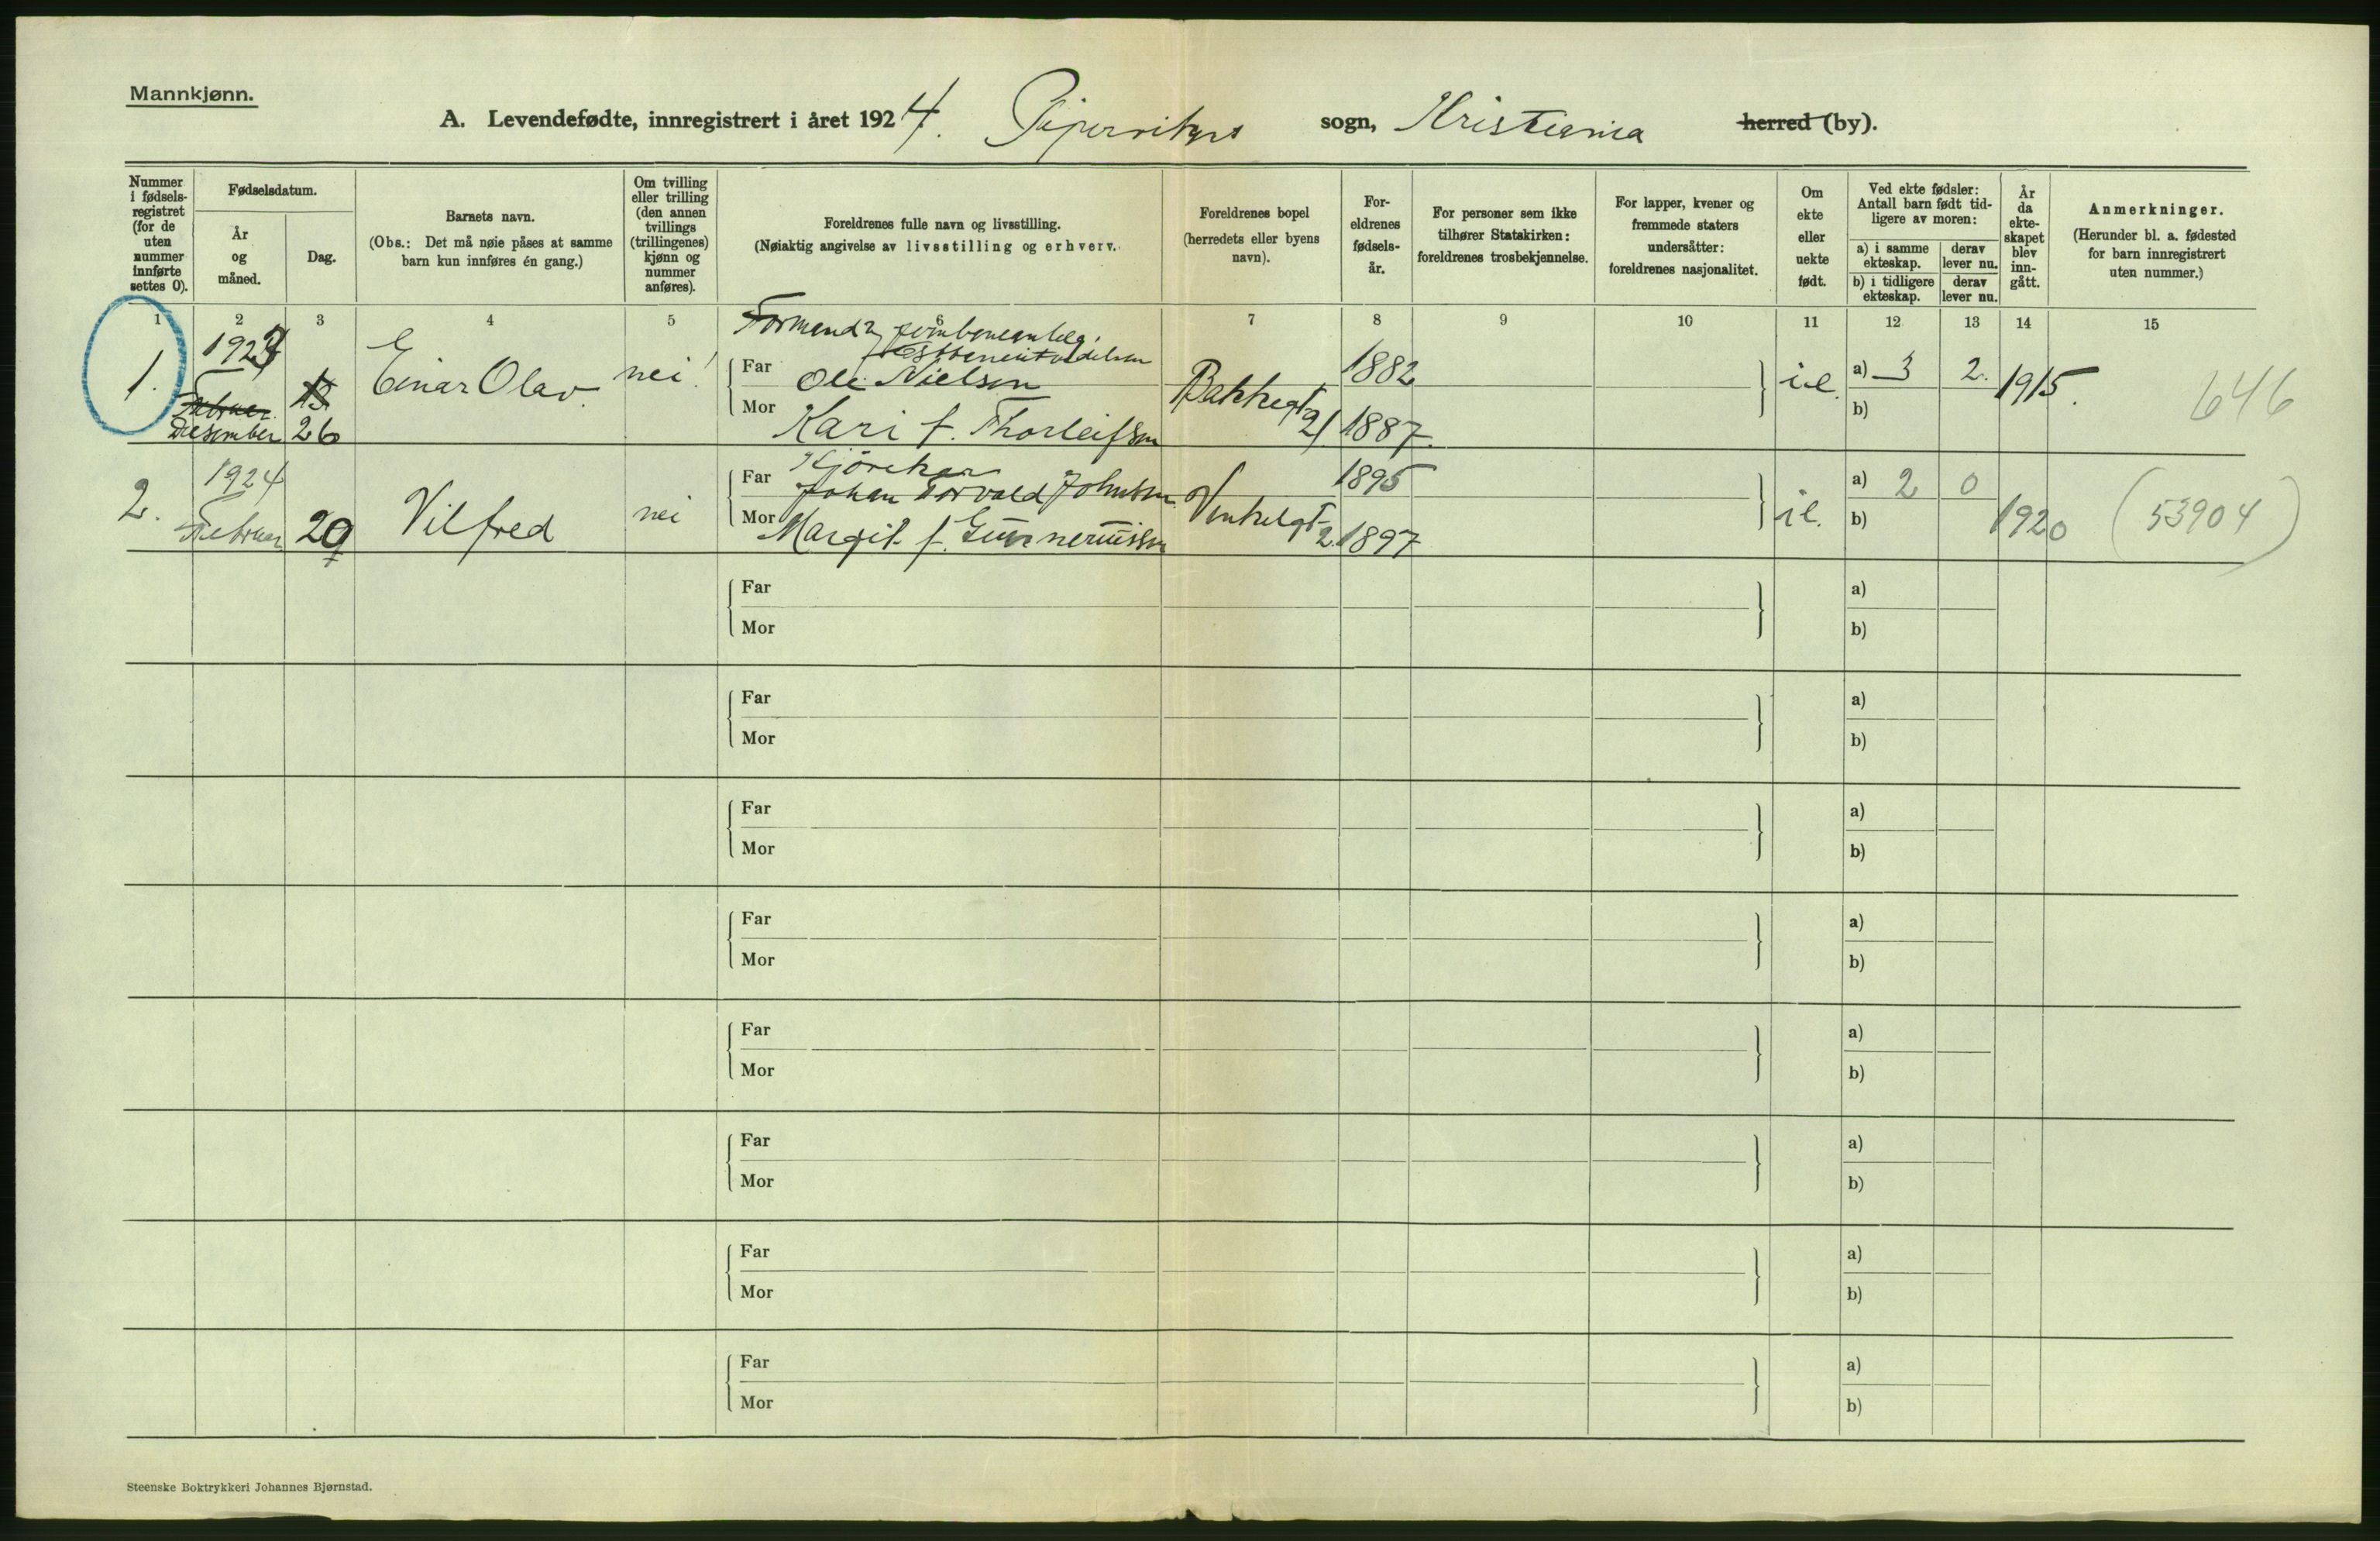 Mannkjønn.
A. Levendefødte, innregistrert i året 1924. Pipervikens sogn, Kristiania herred (by).
Nummer i fødsels-registret (for de uten nummer innførte settes 0).
Fødselsdatum.
År og måned.
Dag.
Barnets navn.
(Obs.: Det må nøie påses at samme barn kun innføres én gang.)
Om tvilling eller trilling (den annen tvillings (trillingenes) kjønn og nummer anføres).
Foreldrenes fulle navn og livsstilling.
(Nøiaktig angivelse av livsstilling og erhverv.)
Foreldrenes bopel (herredets eller byens navn).
For-eldrenes fødsels-år.
For personer som ikke tilhører Statskirken: foreldrenes trosbekjennelse.
For lapper, kvener og fremmede staters undersåtter: foreldrenes nasjonalitet.
Om ekte eller uekte født.
Ved ekte fødsler: Antall barn født tid-ligere av moren:
a) i samme ekteskap.
derav lever nu.
b) i tidligere ekteskap.
derav lever nu.
År da ekte-skapet blev inn-gått.
Anmerkninger.
(Herunder bl. a. fødested for barn innregistrert uten nummer.)
1 2 3 4 5 6 7 8 9 10 11 12 13 14 15
Formand
1. 1923 Einar Olav. nei! Far Ole Nielsen 1882 i.e. a) 3 2. 1915. 646
Februar 13
Desember 26 Mor Kari f. Thorleifsen Bakkegt 21 1887. b)
Kjørekar
2. 1924 Februar 29 Vilfred nei Far Johan Torvald Johnsen Vinkelgt 2. 1895 i.e. a) 2 0 1920 (53904)
Mor Margit f. Gunnerussen 1897 b)
Far a)
Mor b)
Far a)
Mor b)
Far a)
Mor b)
Far a)
Mor b)
Far a)
Mor b)
Far a)
Mor b)
Far a)
Mor b)
Far a)
Mor b)
Steenske Boktrykkeri Johannes Bjørnstad.